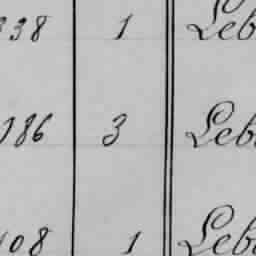 338 1 Leb
186 3 Leb
108 1 Leb